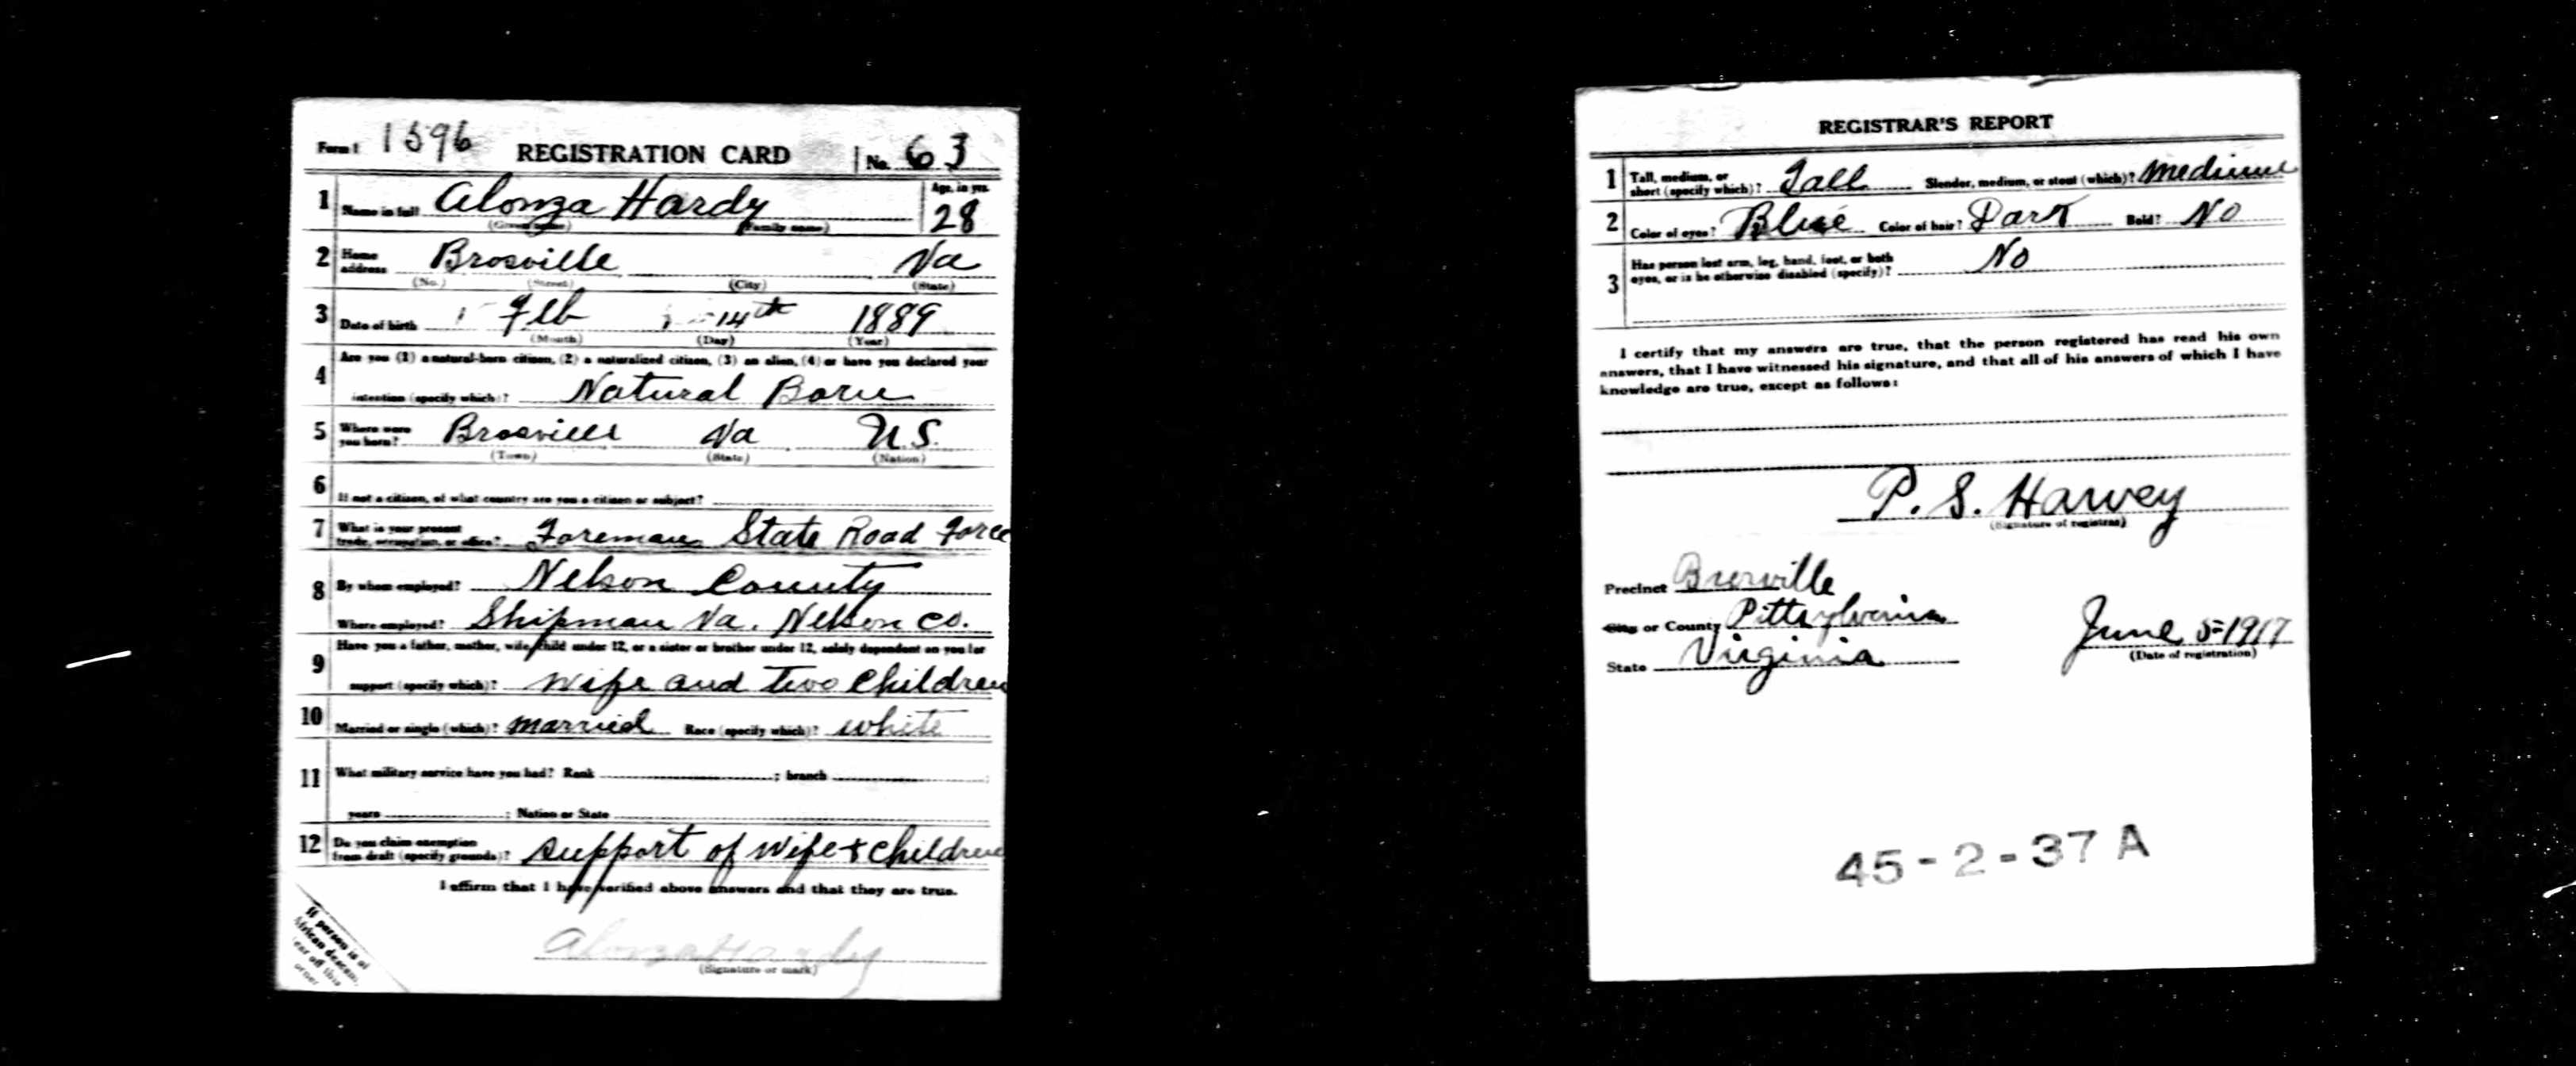 Form 1 1596 REGISTRATION CARD No. 63
1 Name in full Alonza Hardy Age, in yrs. 28
(Given name) (Family name)
2 Home address Brosville Va
(No.) (Street) (City) (State)
3 Date of birth Feb 14th 1889
(Month) (Day) (Year)
4 Are you (1) a natural-born citizen, (2) a naturalized citizen, (3) an alien, (4) or have you declared your
intention (specify which)? Natural Born
5 Where were you born? Brosville Va U.S.
(Town) (State) (Nation)
6 If not a citizen, of what country are you a citizen or subject?
7 What is your present trade, occupation, or office? Foreman State Road Force
8 By whom employed? Nelson County
Where employed? Shipman Va. Nelson Co.
9 Have you a father, mother, wife, child under 12, or a sister or brother under 12, solely dependent on you for
support (specify which)? Wife and Two Children
10 Married or single (which)? married Race (specify which)? white
11 What military service have you had? Rank ; branch ;
years ; Nation or State
12 Do you claim exemption from draft (specify grounds)? Support of Wife + Children
I affirm that I have verified above answers and that they are true.
Alonza Hardy
(Signature or mark)
If person is of
African descent,
tear off this
corner
REGISTRAR'S REPORT
1 Tall, medium, or short (specify which)? Tall Slender, medium, or stout (which)? Medium
2 Color of eyes? Blue Color of hair? Dark Bald? No
3 Has person lost arm, leg, hand, foot, or both eyes, or is he otherwise disabled (specify)? No
I certify that my answers are true, that the person registered has read his own
answers, that I have witnessed his signature, and that all of his answers of which I have
knowledge are true, except as follows:
P. S. Harvey
(Signature of registrar)
Precinct Brosville
City or County Pittsylvania
State Virginia
June 5-1917
(Date of registration)
45-2-37 A